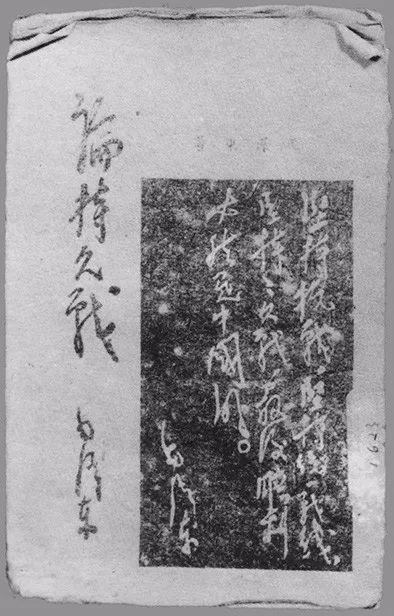 堅持抗戰，堅持統一戰線，
堅持〻久戰，最後勝利
必然是中國的。
毛澤東
論持久戰
毛澤東
1623